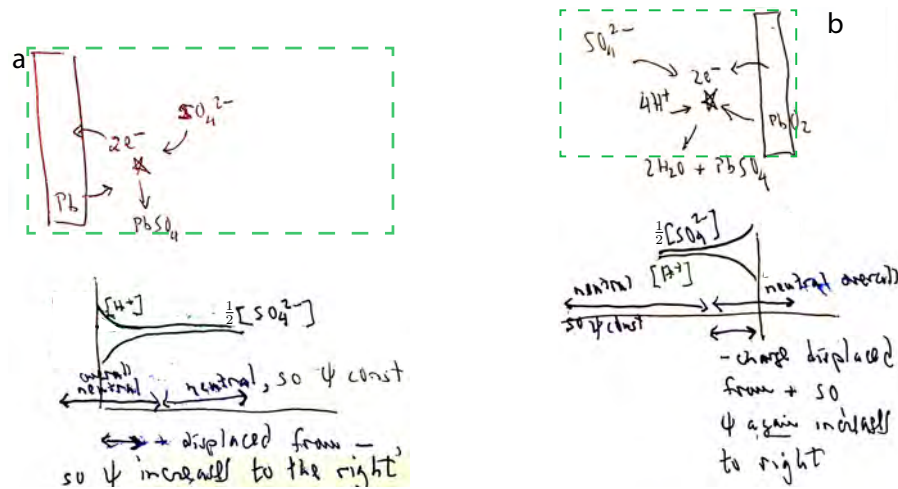 a
2e⁻
SO₄²⁻
Pb
PbSO₄
[H⁺]
½[SO₄²⁻]
overall
neutral
neutral, so ψ const
+ displaced from -,
so ψ increases to the right
b
SO₄²⁻
2e⁻
4H⁺
PbO₂
2H₂O + PbSO₄
½[SO₄²⁻]
[H⁺]
neutral
neutral overall
so ψ const
- charge displaced
from + so
ψ again increases
to right